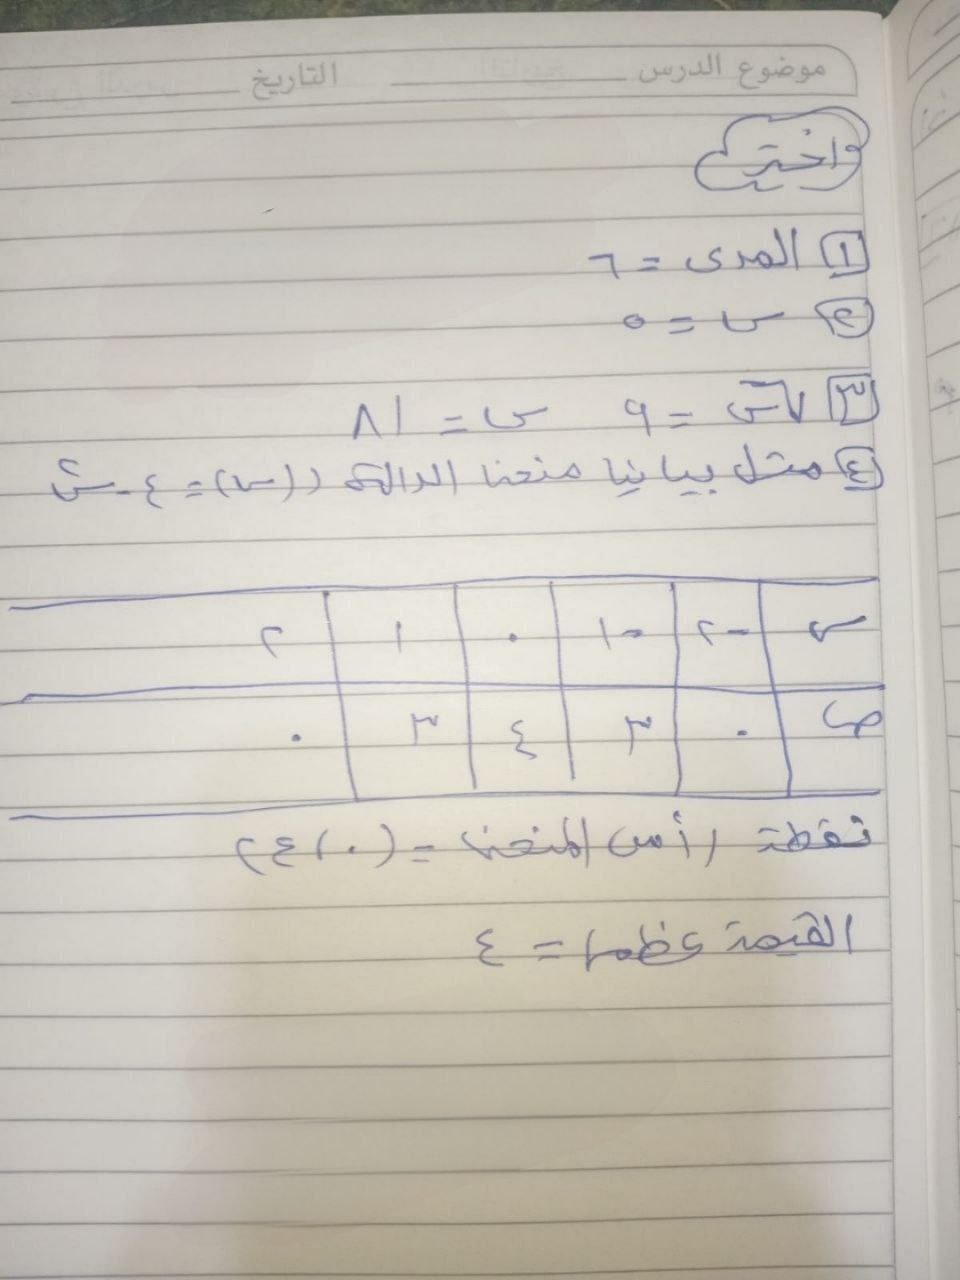 موضوع الدرس التاريخ
اختر
١ المدى = ٦
٢ س = ٥
٣ √س = ٩ س = ٨١
٤ مثل بيانيا منحنا الدالة د(س) = ٤ - س٢
س -٢ -١ ٠ ١ ٢
ص ٠ ٣ ٤ ٣ ٠
نقطة رأس المنحنا = (٠،٤)
القيمة عظما = ٤